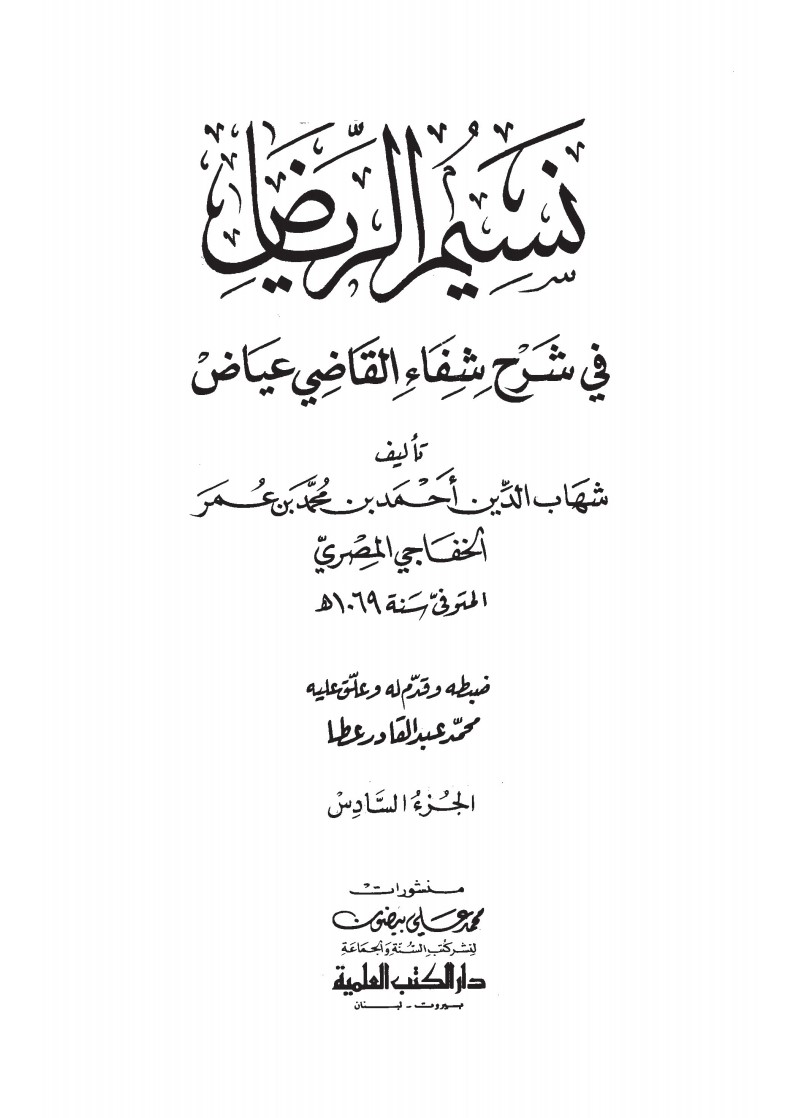 نَسِيمُ الرِّيَاضِ
في شَرْح شِفَاءِ القَاضِي عيَاضْ
تأليف
شهَاب الدِّين أحْمَد بن محُمَّد بن عُمَر
الخفَاجي المِصْريّ
المتوفىّ سَنة ١٠٦٩ھ
ضبطه وقدّم له وعلّق عليه
محمّد عبد القادر عطا
الجُزءُ السَّادِسْ
منشورات
محمد علي بيضون
لنشر كتب السُّنة والجمَاعة
دار الكتب العلمية
بيروت - لبنان